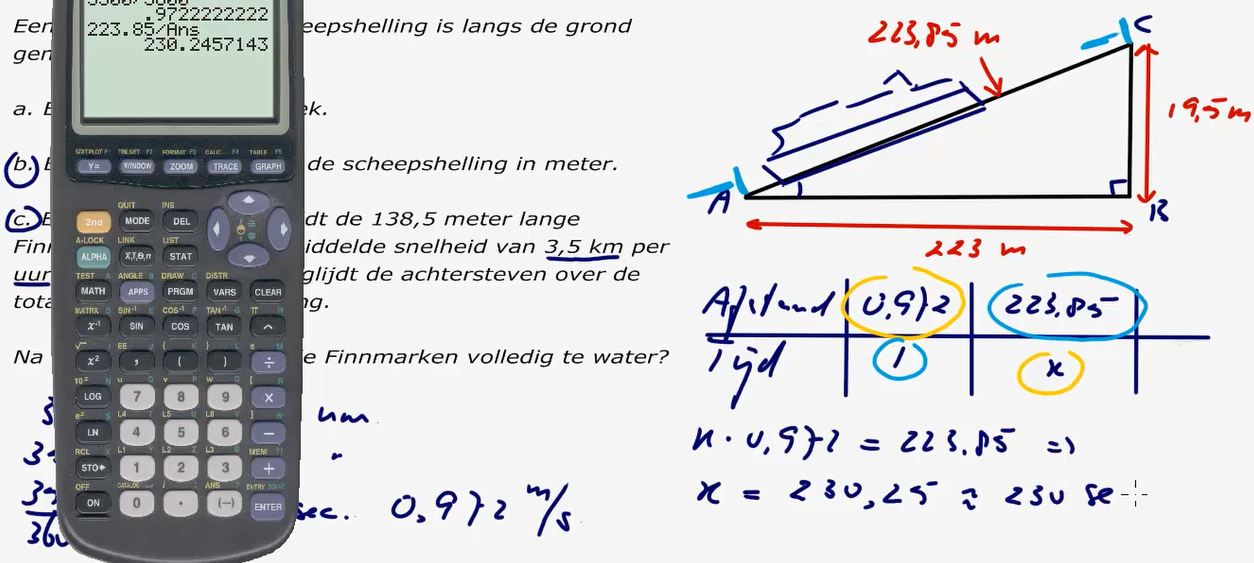 3500/3600
.9722222222
223.85/Ans
230.2457143
Een eepshelling is langs de grond
gen
a. B ek.
b. B de scheepshelling in meter.
c. E dt de 138,5 meter lange
Finn iddelde snelheid van 3,5 km per
uur glijdt de achtersteven over de
tota ng.
Na e Finnmarken volledig te water?
uur
sec. 0,972 m/s
C
223,85 m
19,5 m
A
B
223 m
Afstand 0,972 223,85
Tijd 1 x
x · 0,972 = 223,85 =>
x = 230,25 ≈ 230 se
STATPLOT F1 TBLSET F2 FORMAT F3 CALC F4 TABLE F5
Y= WINDOW ZOOM TRACE GRAPH
QUIT INS
2nd MODE DEL
A-LOCK LINK LIST
ALPHA X,T,θ,n STAT
TEST A ANGLE B DRAW C DISTR
MATH APPS PRGM VARS CLEAR
MATRX D SIN⁻¹ E COS⁻¹ F TAN⁻¹ G π H
x⁻¹ SIN COS TAN ^
√ I EE J { K } L e M
x² , ( ) ÷
10ˣ N u O v P w Q [ R
LOG 7 8 9 ×
eˣ S L4 T L5 U L6 V ] W
LN 4 5 6 −
RCL X L1 Y L2 Z L3 θ MEM "
STO▸ 1 2 3 +
OFF CATALOG i ANS ENTRY SOLVE
ON 0 . (−) ENTER